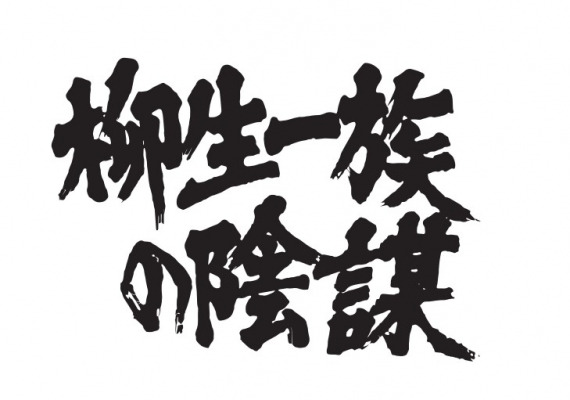 柳生一族
の陰謀